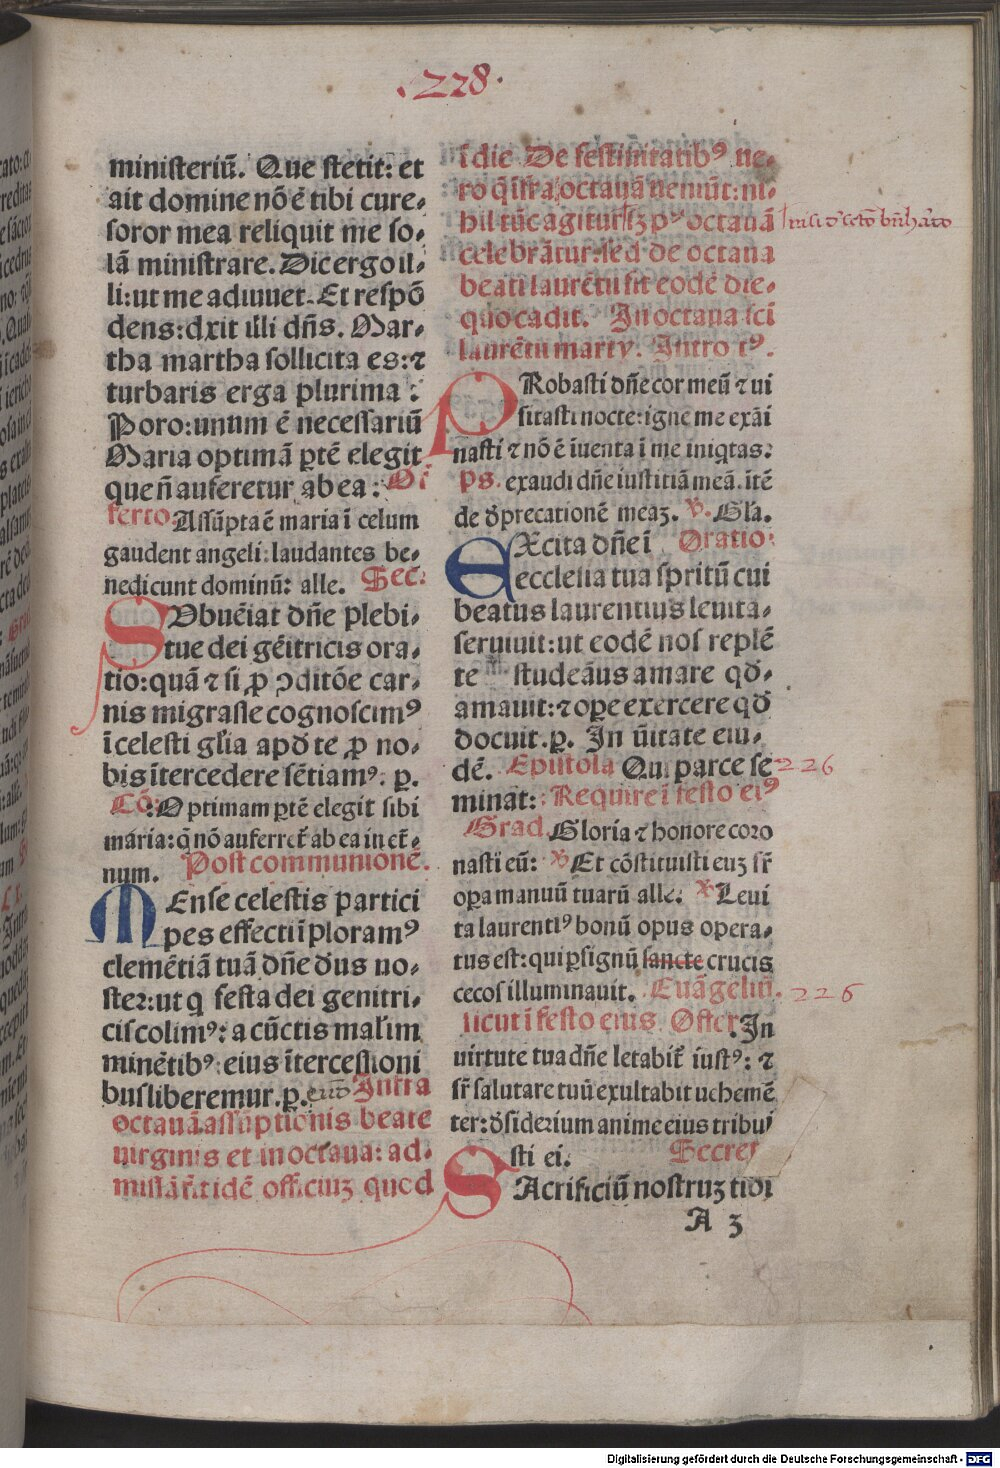 .228.
ministeriū. Que stetit: et
ait domine nō ē tibi cure,
soror mea reliquit me so,
lā ministrare. Dic ergo il,
li: ut me adiuuet. Et respō
dens: dxit illi dn̄s. Mar,
tha martha sollicita es: ⁊
turbaris erga plurima:
Poro: unum ē necessariū
Maria optimā ꝑtē elegit
que n̄ auferetur ab ea: Of
ferto Assūpta ē maria ī celum
gaudent angeli: laudantes be,
nedicunt dominū: alle. Sec:
SUbuēiat dn̄e plebi,
tue dei gēitricis ora,
tio: quā ⁊ si ꝓ ↄditōe car,
nis migrasse cognoscimꝰ
ī celesti gl̄ia apd̄ te ꝓ no,
bis ītercedere sētiamꝰ. p.
Cō: Optimam ꝑtē elegit sibi
maria: q̄ nō auferret̄ ab ea in et̄,
num. Post communionē.
MEnse celestis partici
pes effecti īploramꝰ
clemētiā tuā dn̄e d̄us no,
ster: ut q festa dei genitri,
cis colimꝰ: a cūctis malīm
minētibꝰ: eius ītercessioni
bus liberemur. p. eūd Infra
octauā assūptionis beate
uirginis et in octaua: ad,
missā fit idē officiuꝫ quod
ī die De festiuitatibꝰ ue,
ro q̄ īfra octauā ueniūt: ni,
hil tūc agitur sꝫ pꝰ octauā
celebrātur: sed de octaua
beati laurētii fit eodē die,
quo cadit. In octaua sci
laurētii marty. Intro tꝰ.
PRobasti dn̄e cor meū ⁊ ui
sitasti nocte: igne me exāi
nasti ⁊ nō ē īuenta ī me iniqtas:
ps. exaudi dn̄e iustitiā meā. ītē
de d̄precationē meaꝫ. ℣. Gl̄a.
EXcita dn̄e ī Oratio:
ecclesia tua spritū cui
beatus laurentius leuita,
seruiuit: ut eodē nos replē
te studeāus amare qd̄,
amauit: ⁊ oꝑe exercere qd̄
docuit. p. In ūitate eiu,
dē. Epistola Qui parce se 226
minat: Require ī festo eiꝰ
Grad. Gloria ⁊ honore coro
nasti eū: ℣ Et cōstituisti euꝫ sr̄
oꝑa manuū tuarū alle. ℣ Leui
ta laurentiꝰ bonū opus opera,
tus est: qui ꝑ signū sancte crucis
cecos illuminauit. Euāgeliū. 226
sicut ī festo eius. Offer. In
uirtute tua dn̄e letabit̄ iustꝰ: ⁊
sr̄ salutare tuū exultabit uehemē
ter: d̄siderium anime eius tribui
sti ei. Secret
SAcrificiū nostruꝫ tibi
A 3
Digitalisierung gefördert durch die Deutsche Forschungsgemeinschaft - DFG